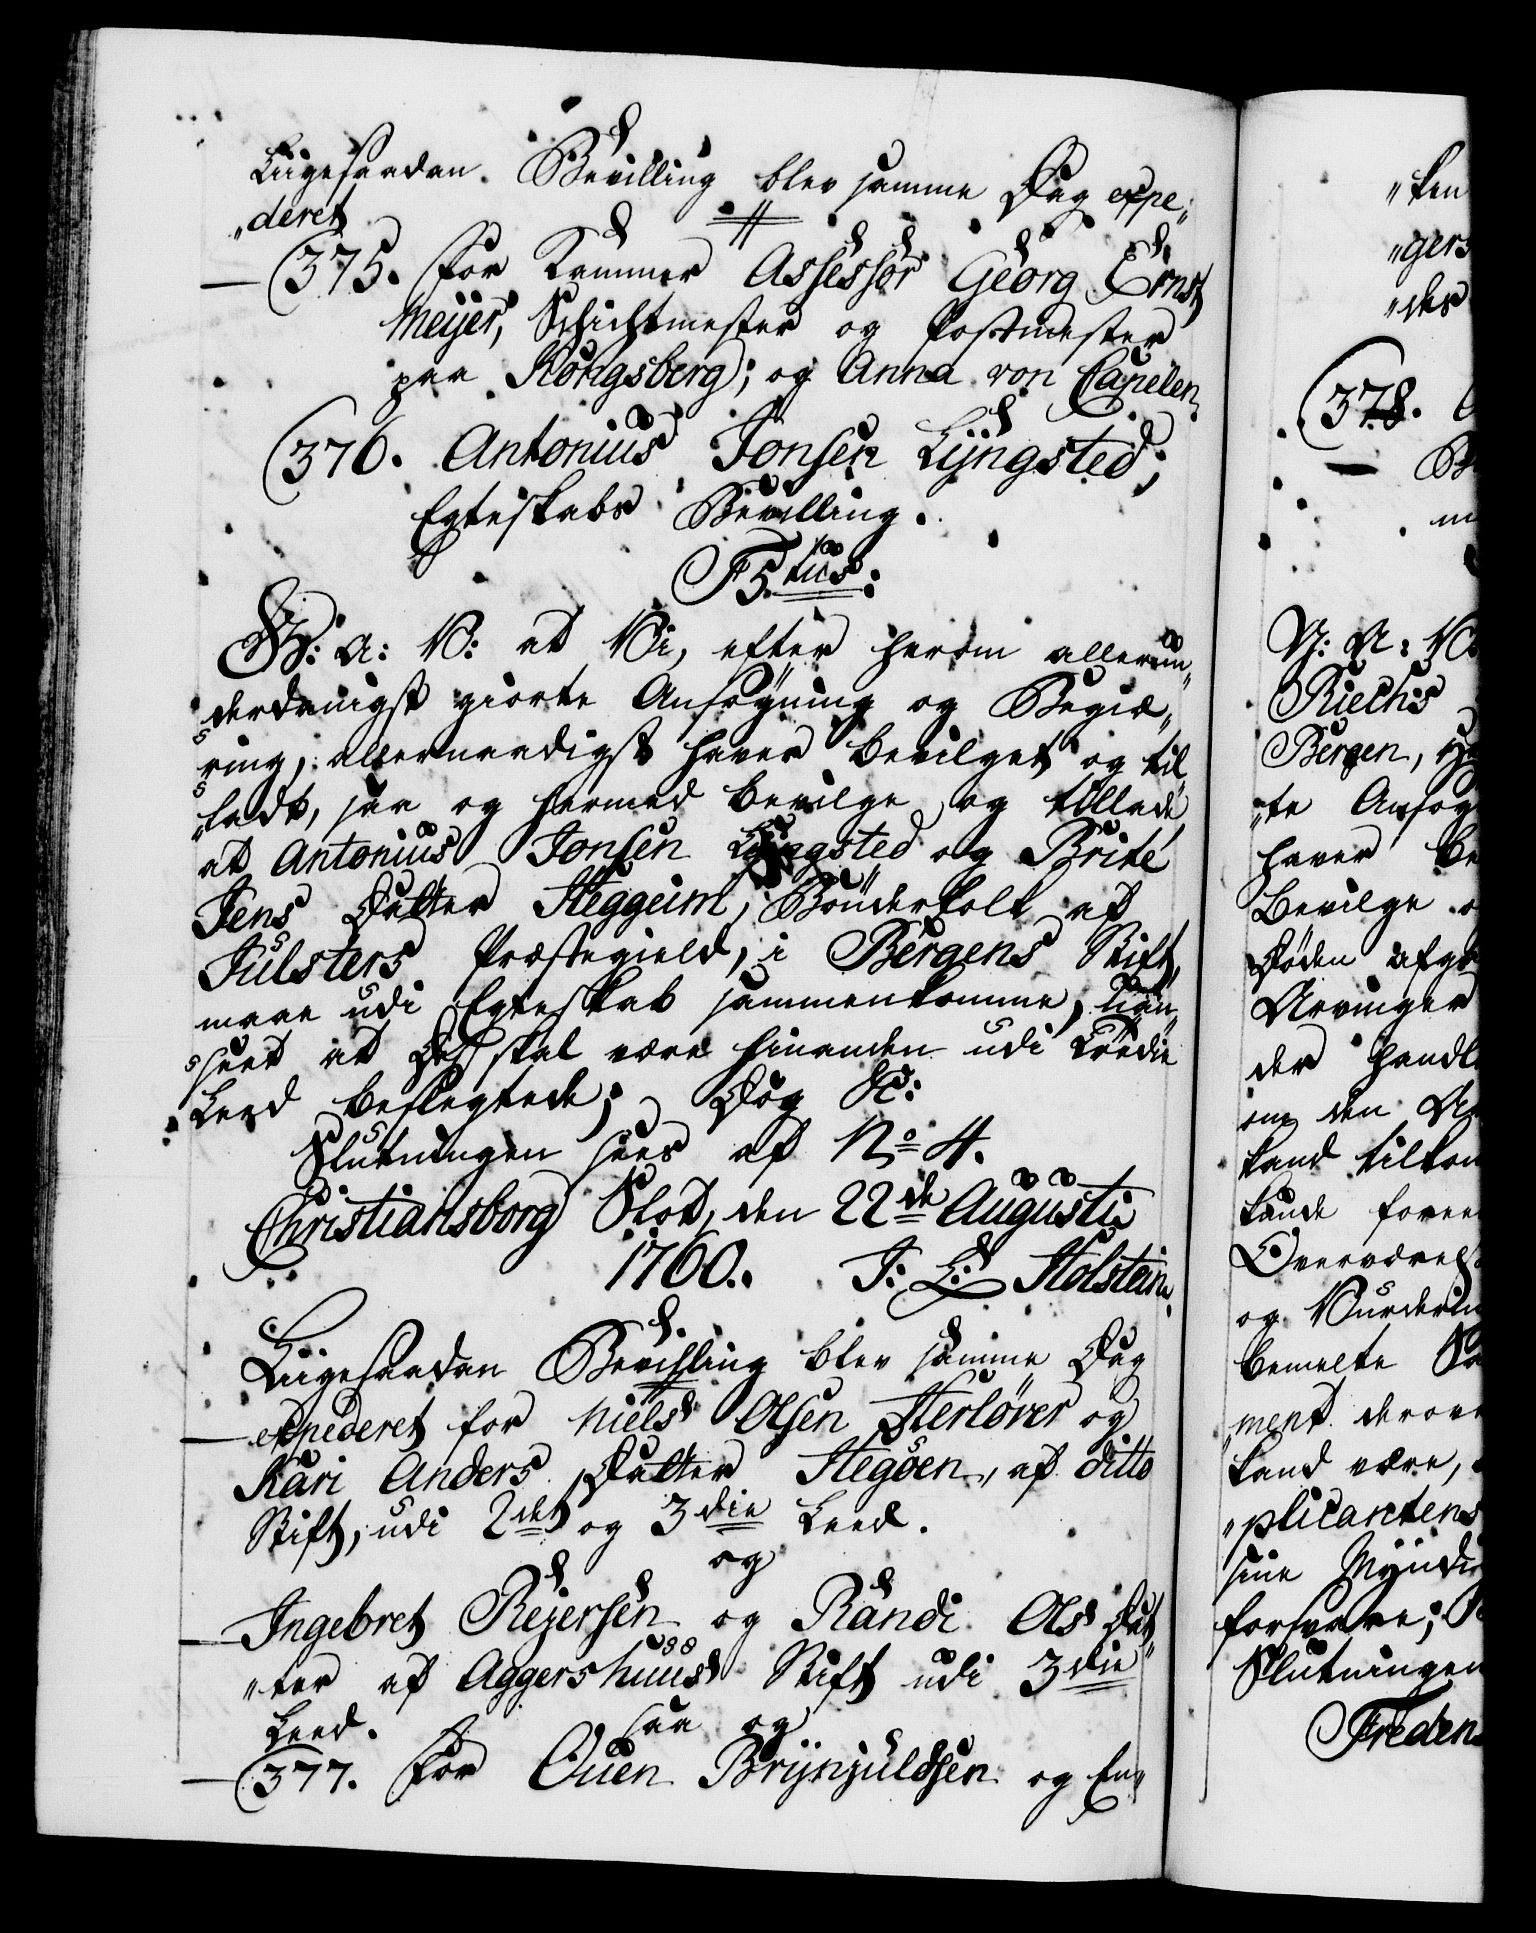 Liigesaadan Bevilling blev samme Dag expe„
„deret
(375. for Kammer Assessor Georg Ernst
Meyer, Schichtmester og Postmester
paa Kongsberg; og Anna von Capelen
(376. Antonius Jonsen Lÿngsted;
Egteskabs Bevilling.
F5.tus:
G: A: V: at Vi, efter herom allerun„
derdanigst giorte Ansøgning og Begiæ„
ring, allernaadigst haver bevilget og til„
„ladt, saa og hermed bevilge og tillade
at Antonius Jonsen Lÿngsted og Brite
Jens Datter Heggeim, Bønderfolk af
Jülsters Præstegield, i Bergens Stift,
maae udi Egteskab sammenkomme, uan„
seet at De skal være hinanden udi Tredie
Leed beslegtede; Dog &c:
Slutningen sees af No 4.
Christiansborg Slot, den 22de Augusti
1760. J: L: Holstein.
Liigesaadan Bevilling blev samme Dag
expederet for Niels Olsen Herløver og
Kari Anders Datter Hegøen, af ditto
Stift, udi 2det og 3die Leed.
og
Ingebret Rejersen og Randi Ols Dat„
„ter af Aggershuus Stift udi 3die
Leed. saa og
(377. for Ouen Brÿnjuldsen og En„
„ken
„gers
„des
(378.
N: A: V:
Riechs
Bergen,
„te Ansøg
haver be
Bevilge o
Døden afg
Arvinger
der handl
om den
kand tilkom
kunde foree
Overværels
og Vurderin
bemelte
ment derove
kand være,
„plicantens
sine Myndi
forsvare;
Slutningen
Freden